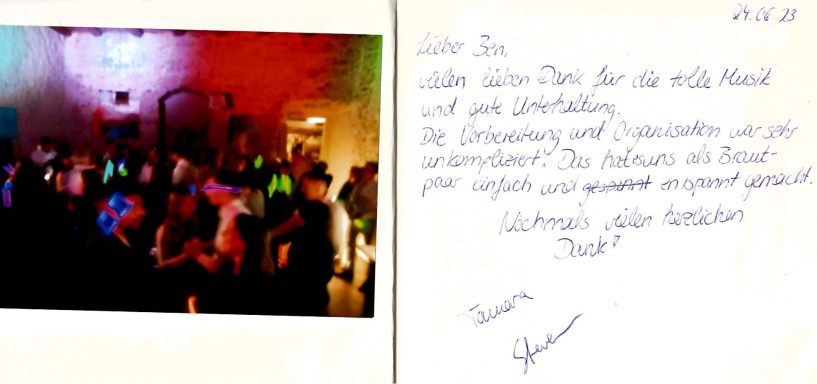 24.06.23
Lieber Ben,
vielen lieben Dank für die tolle Musik
und gute Unterhaltung.
Die Vorbereitung und Organisation war sehr
unkompliziert! Das hat es uns als Braut-
paar einfach und gespannt entspannt gemacht.
Nochmals vielen herzlichen
Dank!
Tamara
Steven